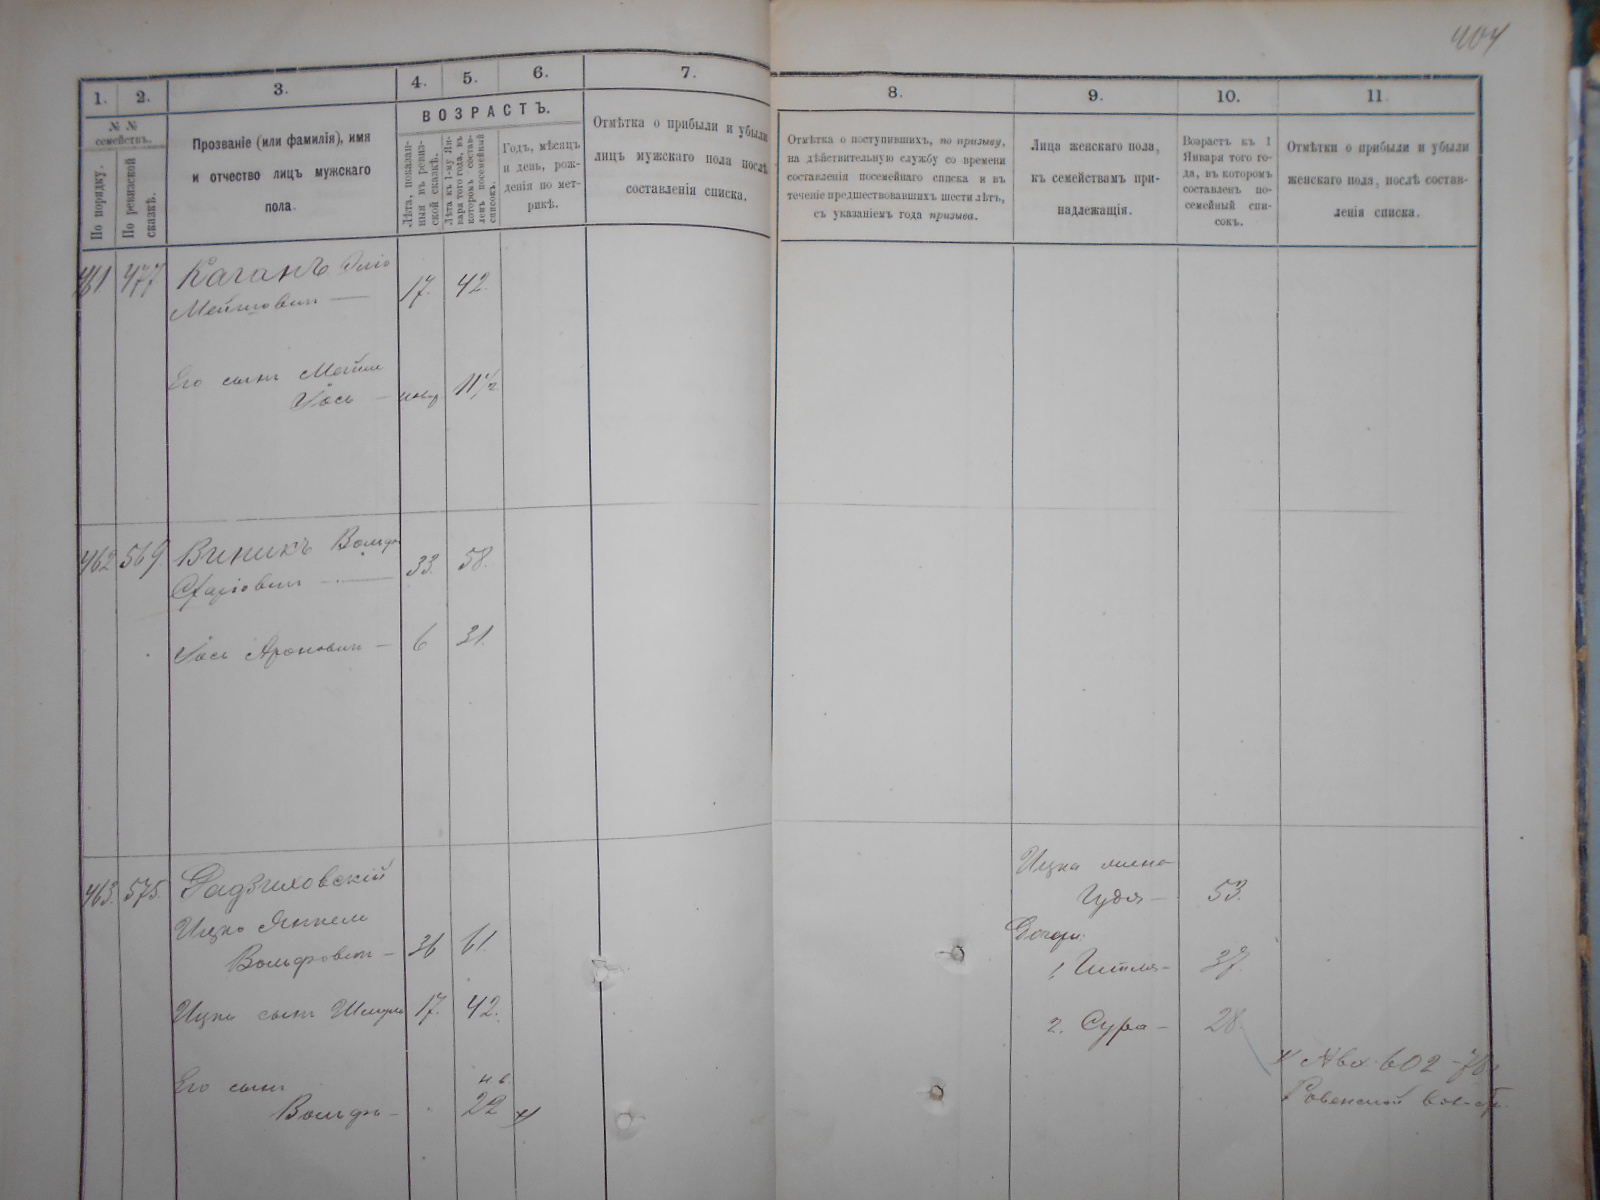 404
1.
2.
3.
4.
5.
6.
7.
8.
9.
10.
11.
№ №
семействъ.
По порядку.
По ревизской
сказкѣ.
Прозваніе (или фамилія), имя
и отчество лицъ мужскаго
пола.
ВОЗРАСТЪ.
Лѣта, показан-
ныя въ ревиз-
ской сказкѣ.
Лѣта къ 1-му Ян-
варя того года, въ
которомъ состав-
ленъ посемейный
списокъ.
Годъ, мѣсяцъ
и день, рож-
денія по мет-
рикѣ.
Отмѣтка о прибыли и убыли
лицъ мужскаго пола послѣ
составленія списка.
Отмѣтка о поступившихъ, по призыву,
на дѣйствительную службу со времени
составленія посемейнаго списка и въ
теченіе предшествовавшихъ шести лѣтъ,
съ указаніемъ года призыва.
Лица женскаго пола,
къ семействамъ при-
надлежащія.
Возрастъ къ 1
Января того го-
да, въ которомъ
составленъ по-
семейный спи-
сокъ.
Отмѣтки о прибыли и убыли
женскаго пола, послѣ состав-
ленія списка.
461. 477 Каганъ Эліо
Мейшовичъ — 17. 42.
Его сынъ
Іось — 11 1/2
462 569. Виникъ Вольфъ
33. 58.
Іось Ароновичъ — 6 31.
463. 575. Радзиховскій
Ицко Янкель
Вольфовичъ — 36 61.
Ицка сынъ Шмуль 17. 42.
Его сынъ
Вольфъ — 22
Ицка жена
Гудя — 53.
Дочери:
1. Гитля — 37.
2. Сура — 28.
602 - 78
Ровенской